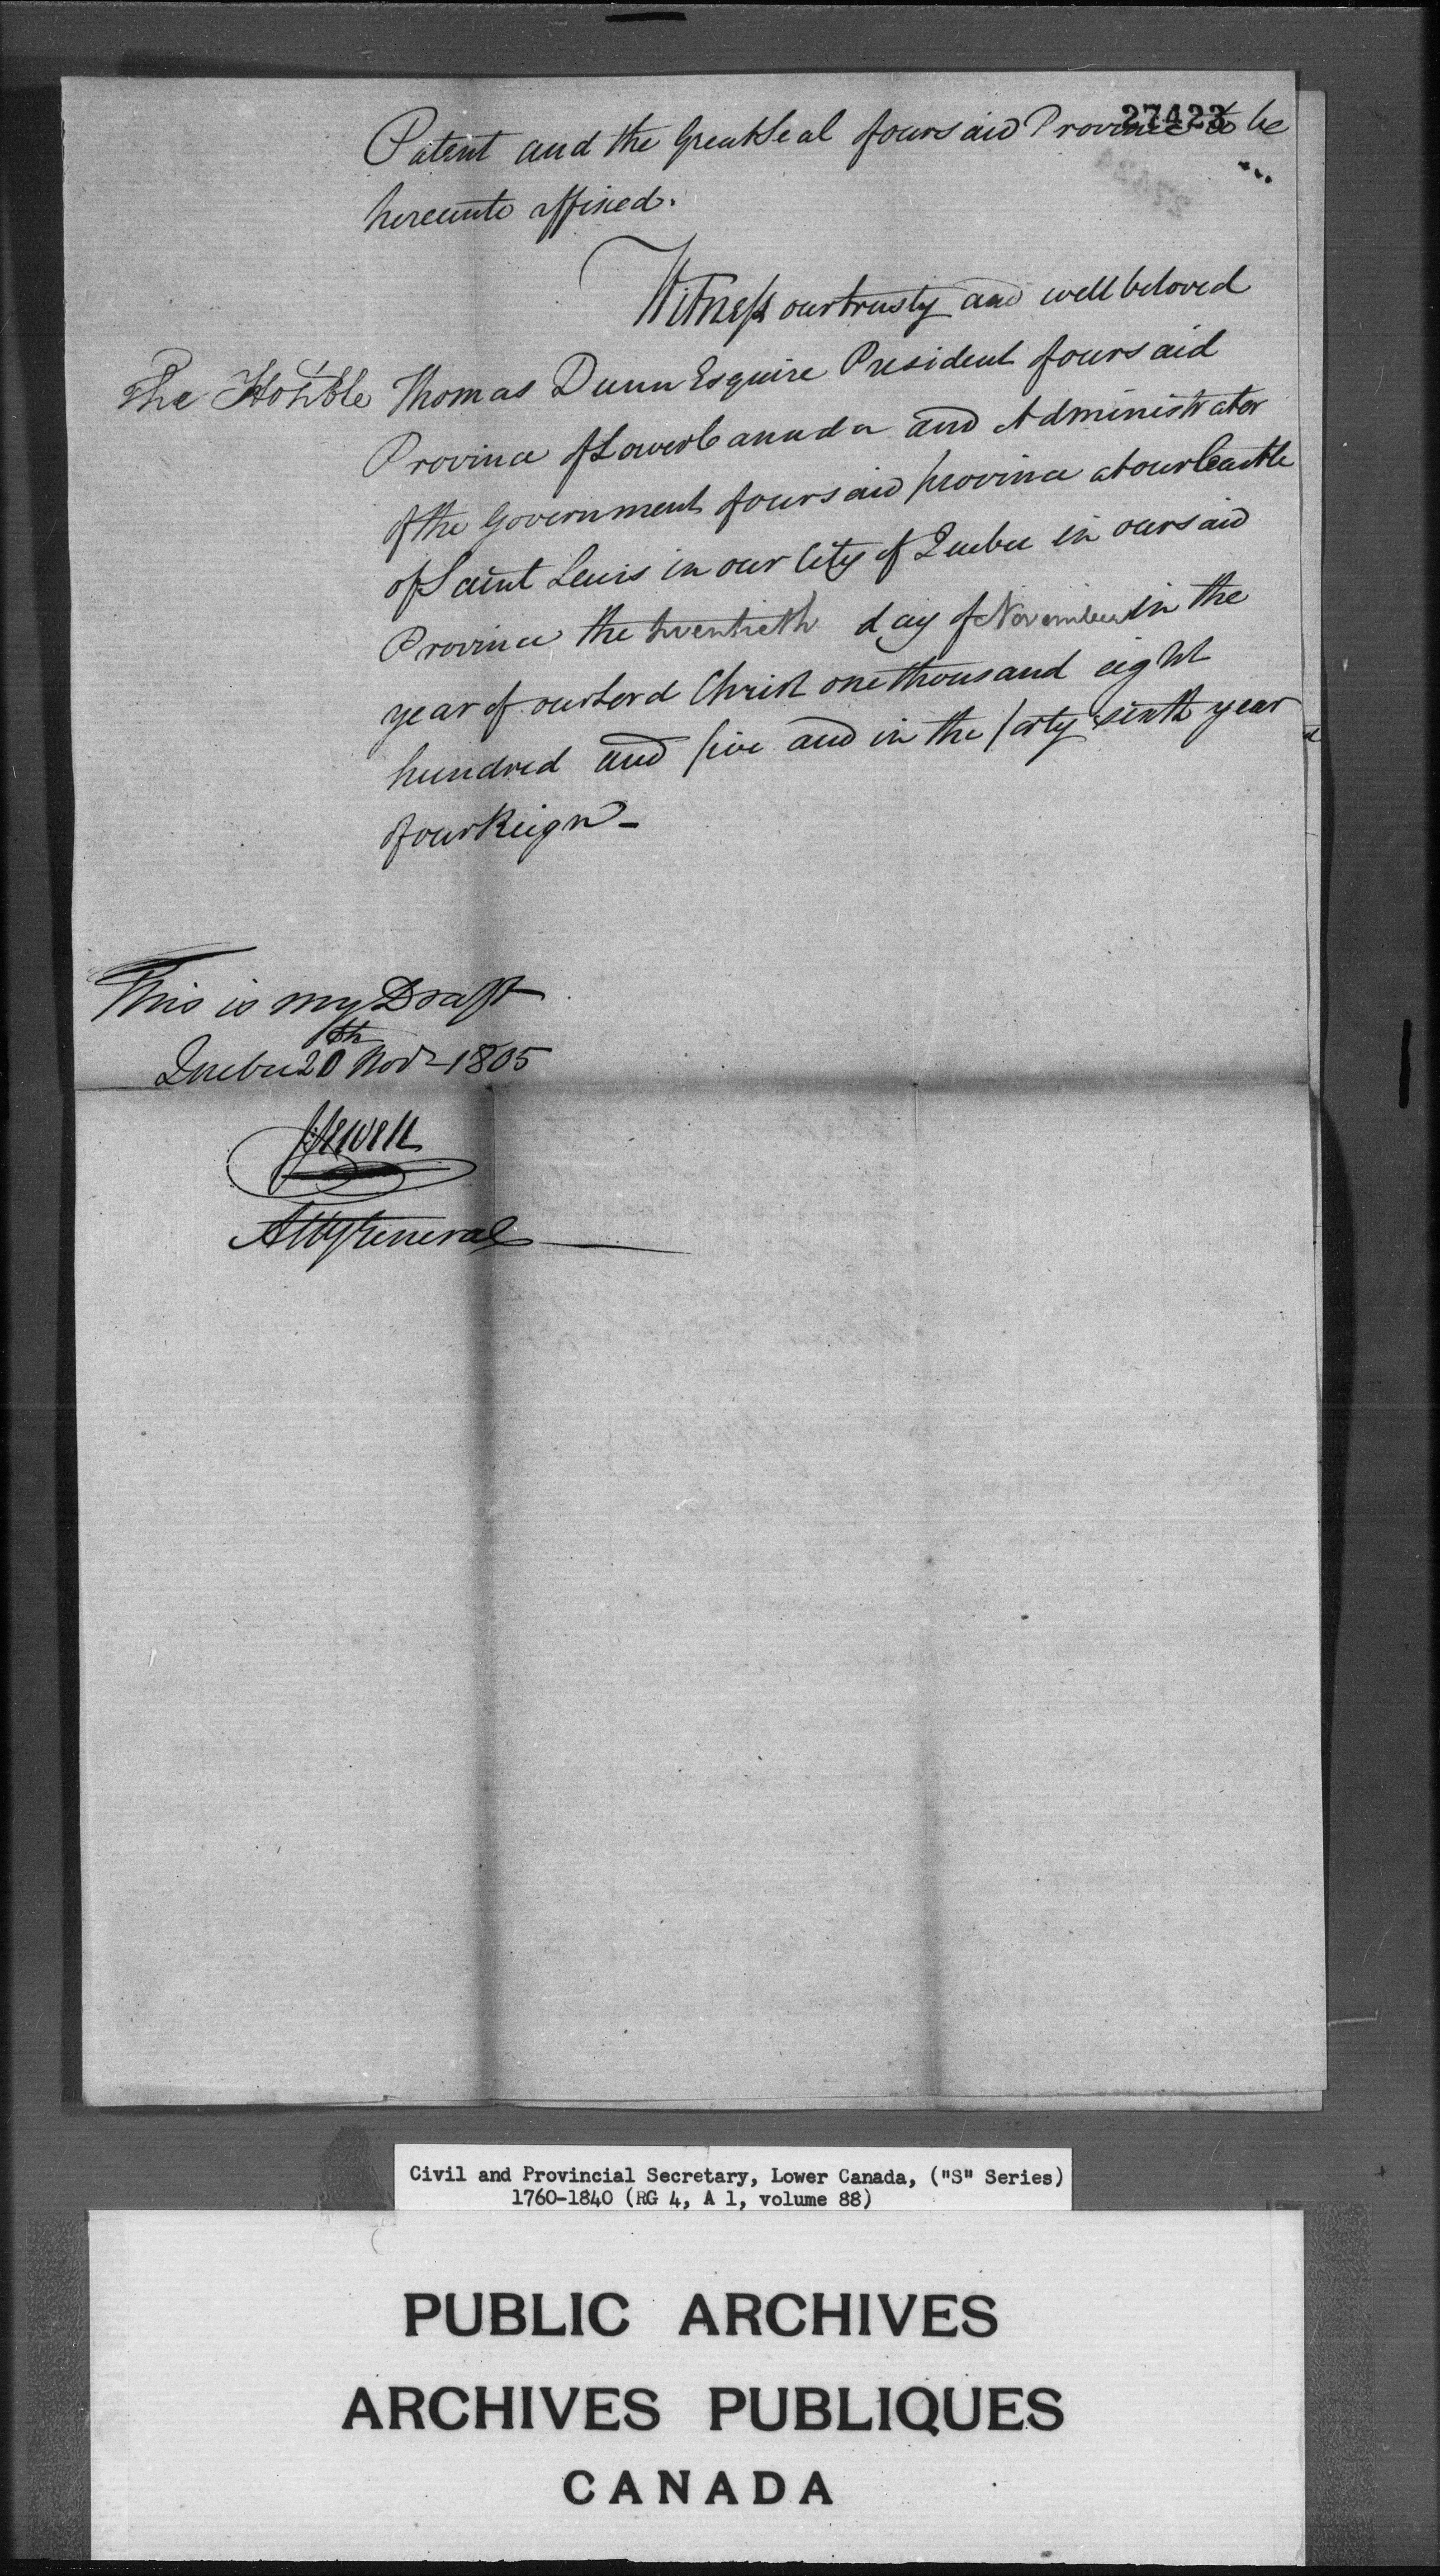 27423
Patent and the Great Seal of our said Province to be
hereunto affixed.
Witness our trusty and well beloved
The Honble Thomas Dunn Esquire President of our said
Province of Lower Canada and Administrator
of the Government of our said province at our Castle
of Saint Lewis in our City of Quebec in our said
Province the twentieth day of November in the
year of our Lord Christ one thousand eight
hundred and five and in the forty sixth year
of our Reign -
This is my Draft
Quebec 20th Novr 1805
J Sewell
Atty General
Civil and Provincial Secretary, Lower Canada, ("S" Series)
1760-1840 (RG 4, A 1, volume 88)
PUBLIC ARCHIVES
ARCHIVES PUBLIQUES
CANADA